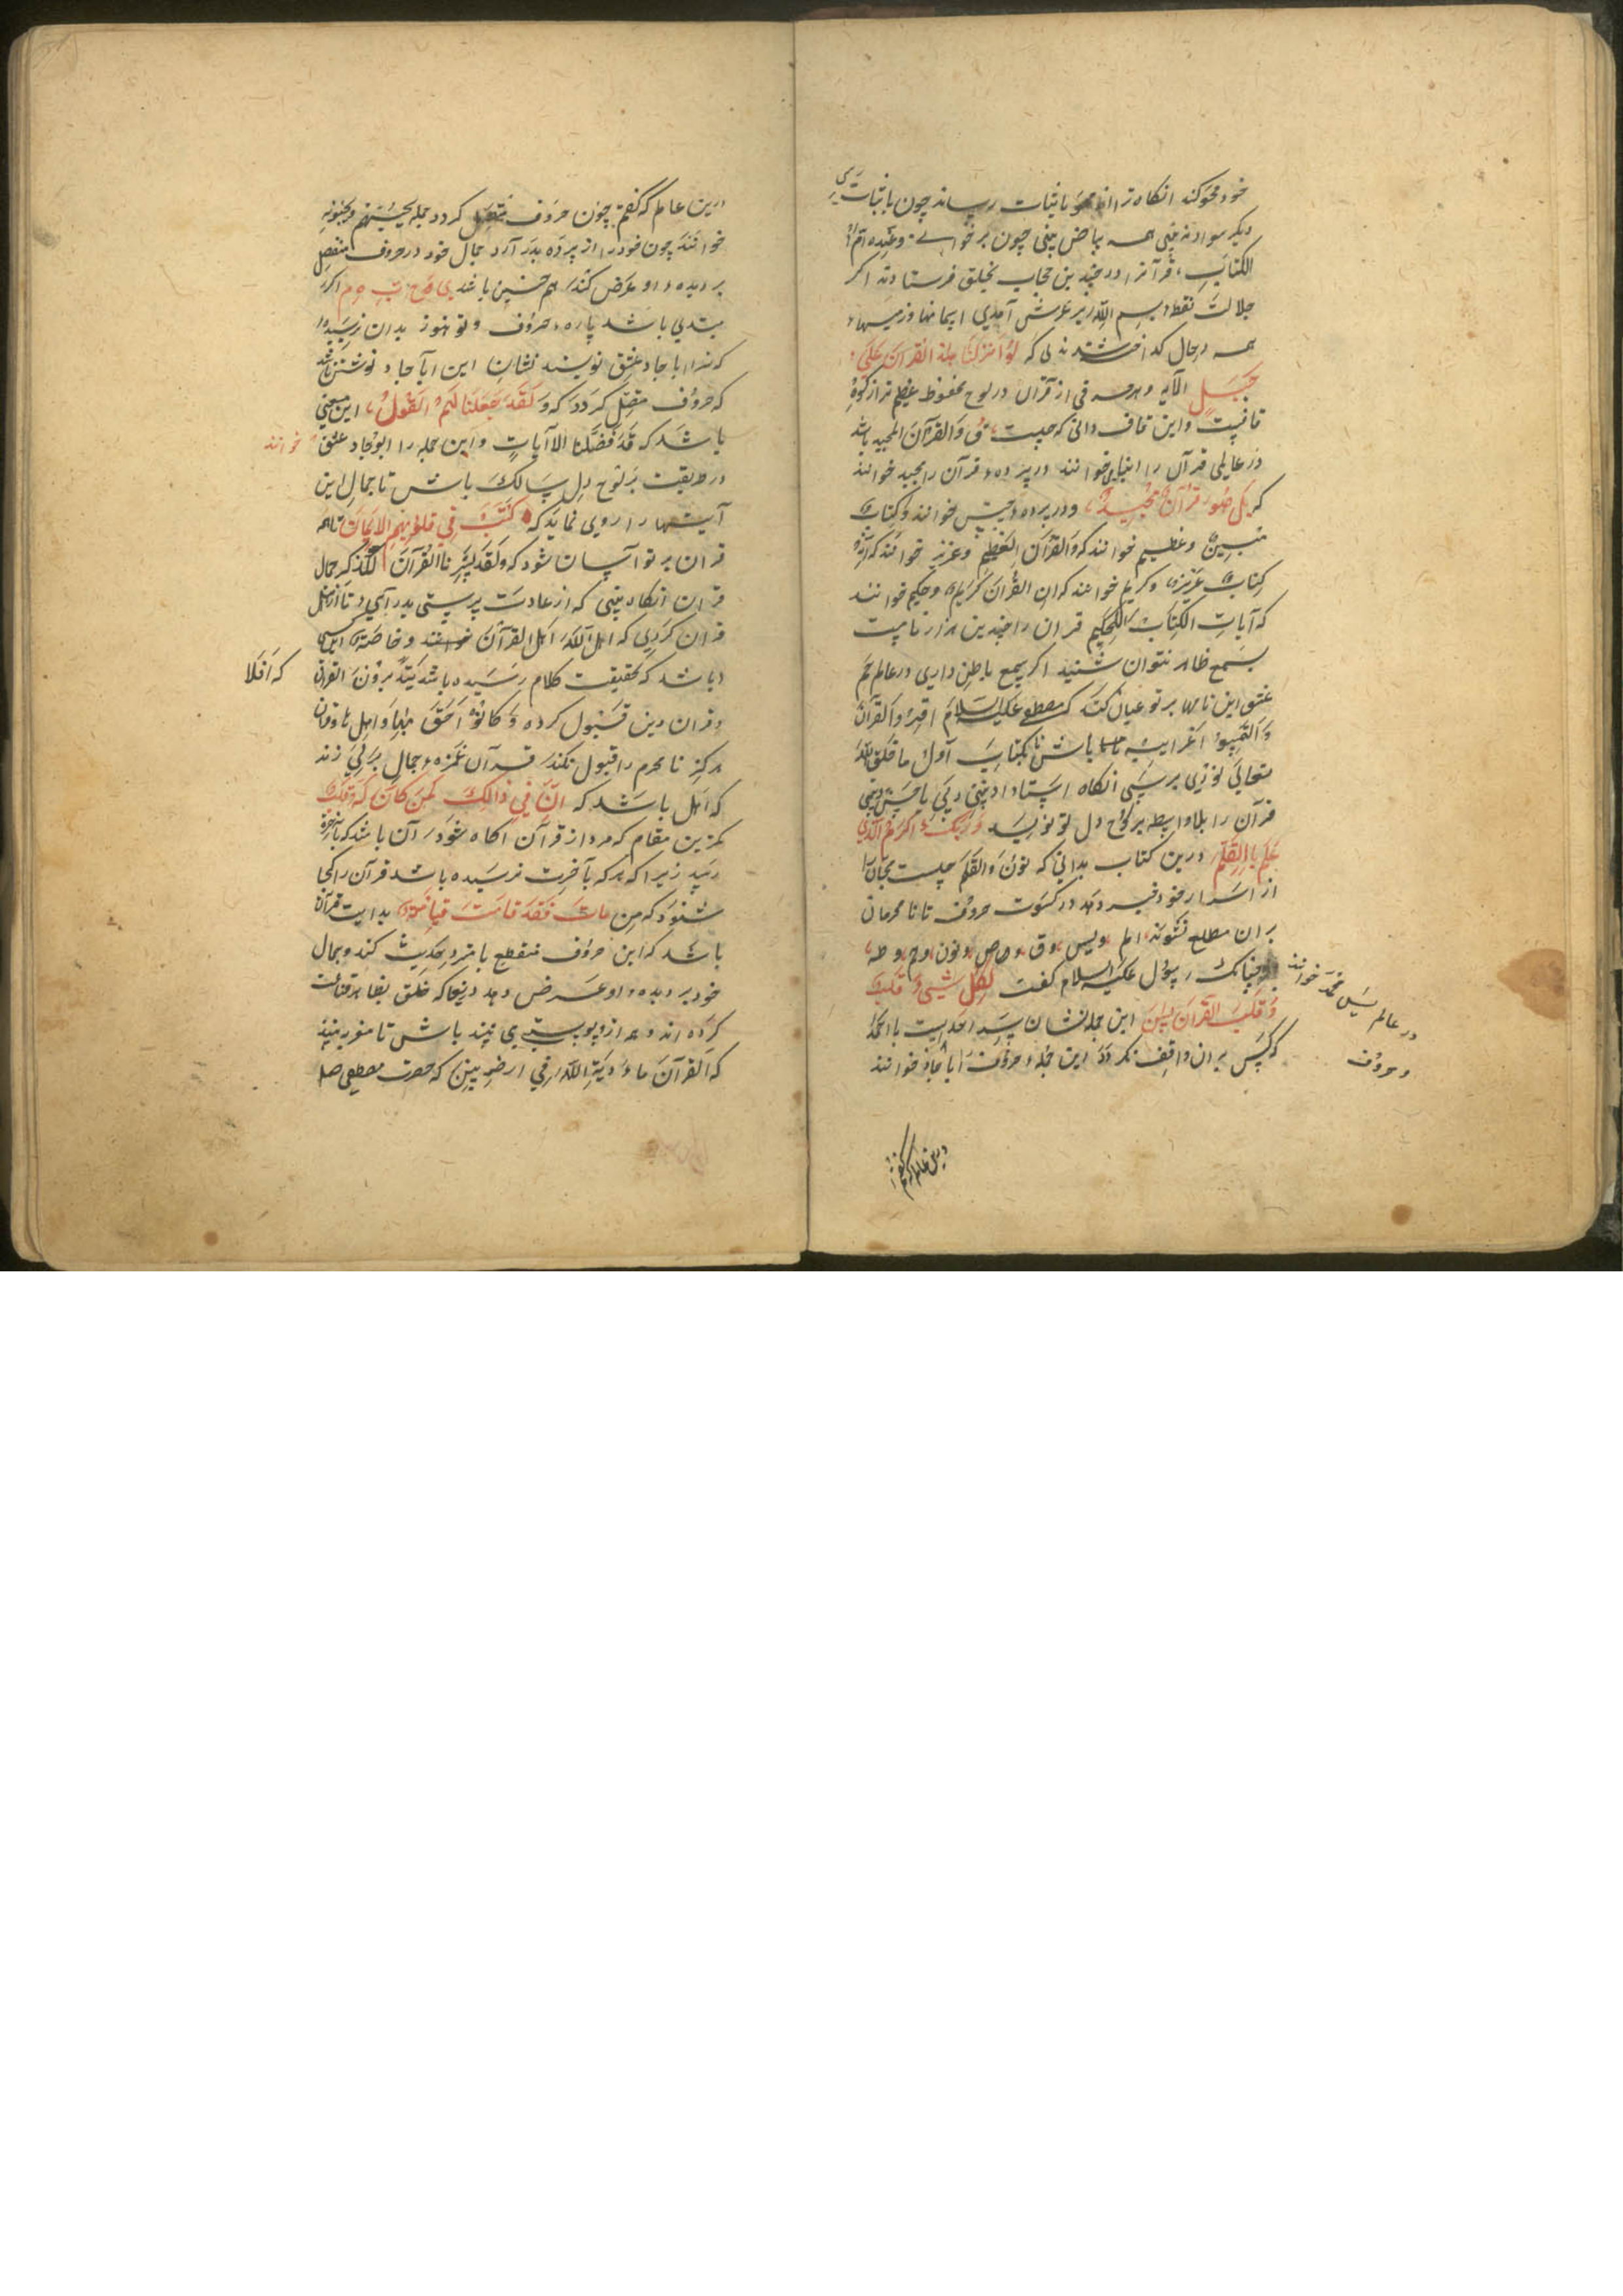 خود محو کند انکاه ترا از محو باثبات رساند چون باثبات رسی
دیکر سواد نه بینی همه بیاض بینی چون بر خوانی وعنده ام
الکتاب قرآنرا درچندین حجاب بخلق فرستادند اکر
جلالت نقطه بسم الله بر عرش آمدی یا بآسمانها وزمینها
همه درحال کداختندی که لو انزلنا هذا القران علی
جبل الآیه وهر حرفی از قرآن در لوح محفوظ عظیم تر از کوه
قافست واین قاف دانی که چیست ق والقرآن المجید باشد
در عالمی قرآن را خوانند در پرده قرآن را مجید خوانند
که بل هو قرآن مجید ودر پرده مبین خوانند وکتاب
مبین وعظیم خوانند که والقرآن العظیم وعزیز خوانند که انه
کتاب عزیز وکریم خوانند که ان القرآن کریم وحکیم خوانند
که آیات الکتاب الحکیم قران را چندین هزار نامست
بسمع ظاهر نتوان شنید اکر سمع باطن داری در عالم حم
عشق این نامها بر تو عیان کند که مصطفی علیه السلام اقرؤا القرآن
والتمسوا غرایبه تا باش تا بکتاب اول ما خلق الله
تعالی نوری برسی انکاه استاد ادبنی ربی باحسن بینی
قرآن را بلا واسطه بر لوح دل تو نویسد وربک الاکرم الذی
علم بالقلم درین کتاب بدانی که نون والقلم چیست
از اسرار خود خبر دهد در کسوت حروف تا نامحرمان
بران مطلع نشوند الم ویس وق وص ونون وحم وطه
چنانک رسول علیه السلام کفت لکل شیئ قلب
در عالم یس محمد خوانند
وقلب القرآن یس این جمله نشان سر احدیست با احمد
که کس بران واقف نکردد این جمله حروف را ابجاد خوانند
وحروف
درین عالم که کفتم
درین عالم که کفتم چون حروف متصل کردد جمله یحبهم ویحبونه
خوانند چون خود را از پرده بدر آرد جمال خود در حروف منفصل
بر دیده او عرض کند هم چنین باشد ی ح ب ه م اکر
مبتدی باشد پاره حروف وتو هنوز بدان نرسیده
که ترا ابجاد عشق نویسند نشان این ابجاد نوشتن باشد
که حروف متصل کردد که ولقد وصلنا لهم القول این معنی
باشد که قد فصلنا الآیات واین جمله را ابوجاد عشق خوانند
در طریقت بر لوح دل سالک باش تا جمال این
آیتها را روی نماید که کتب فی قلوبهم الایمان تا همه
قران بر تو آسان شود که ولقد یسرنا القرآن للذکر جمال
قران انکاه بینی که از عادت پرستی بدر آی تا از اهل
قران کردی که اهل الله اهل القرآن خوانند وخاصته این کسی
باشد که بحقیقت کلام رسیده باشد یتدبرون القران که افلا
وقران دین قبول کرده وکانوا احق بها واهلها وقران
هرکز نامحرم را قبول نکند قرآن غمزه جمال بر دلی زند
که اهل باشد که ان فی ذالک لمن کان له قلب
کمترین مقام که مرد از قرآن آکاه شود آن باشد که بآخرت
رسد زیرا که هر که بآخرت نرسیده باشد قرآن را کجا
شنود که من مات فقد قامت قیامته بدایت قرآن
باشد که این حروف منقطع با مرد حدیث کند وجمال
خود بر دیده او عرض دهد دریغا که خلق بظاهر قناعت
کرده اند وهمه از وی پوستی می بینند باش تا مغز بینند
که القرآن مادبة الله فی ارضه ببین که حضرت مصطفی صلم